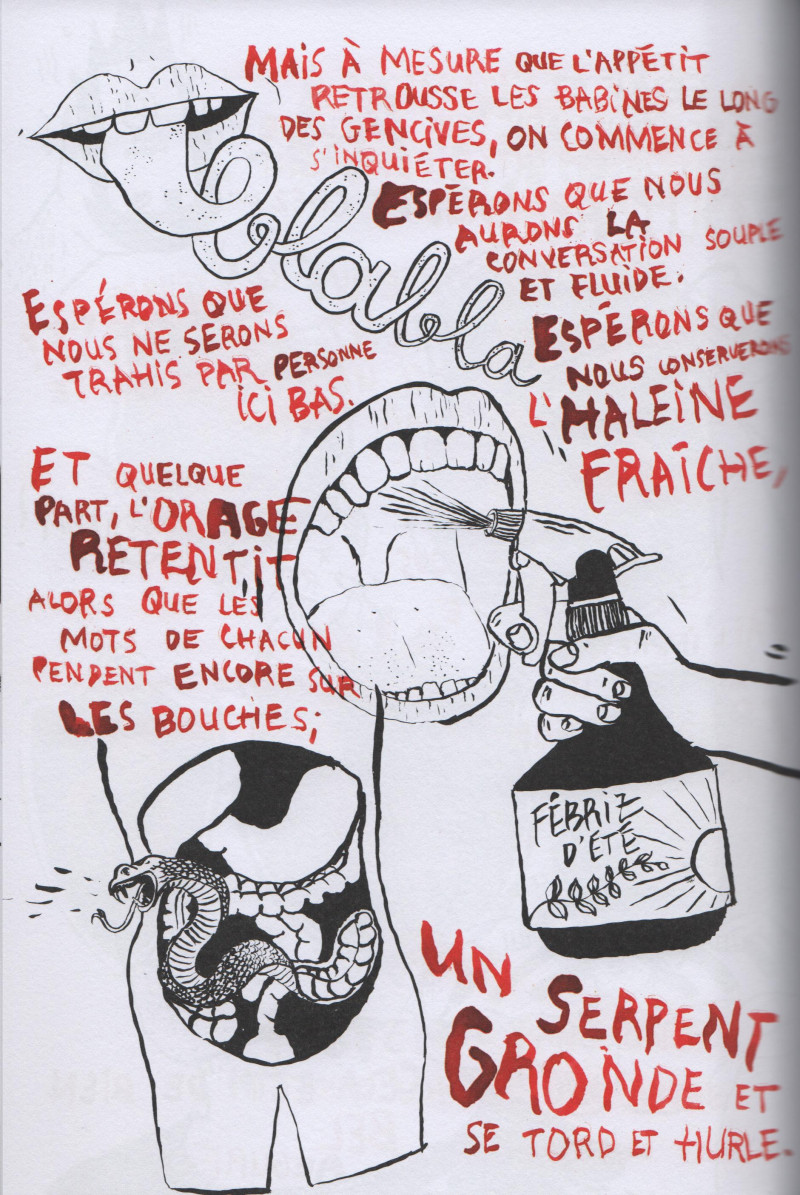 MAIS À MESURE QUE L'APPÉTIT
RETROUSSE LES BABINES LE LONG
DES GENCIVES, ON COMMENCE À
S'INQUIÉTER.
blabla
ESPÉRONS QUE NOUS
AURONS LA
CONVERSATION SOUPLE
ET FLUIDE.
ESPÉRONS QUE
NOUS NE SERONS
TRAHIS PAR PERSONNE
ICI BAS.
ESPÉRONS QUE
NOUS CONSERVERONS
L'HALEINE
FRAÎCHE,
ET QUELQUE
PART, L'ORAGE
RETENTIT
ALORS QUE LES
MOTS DE CHACUN
PENDENT ENCORE SUR
LES BOUCHES;
FÉBRIZ
D'ÉTÉ
UN
SERPENT
GRONDE ET
SE TORD ET HURLE.